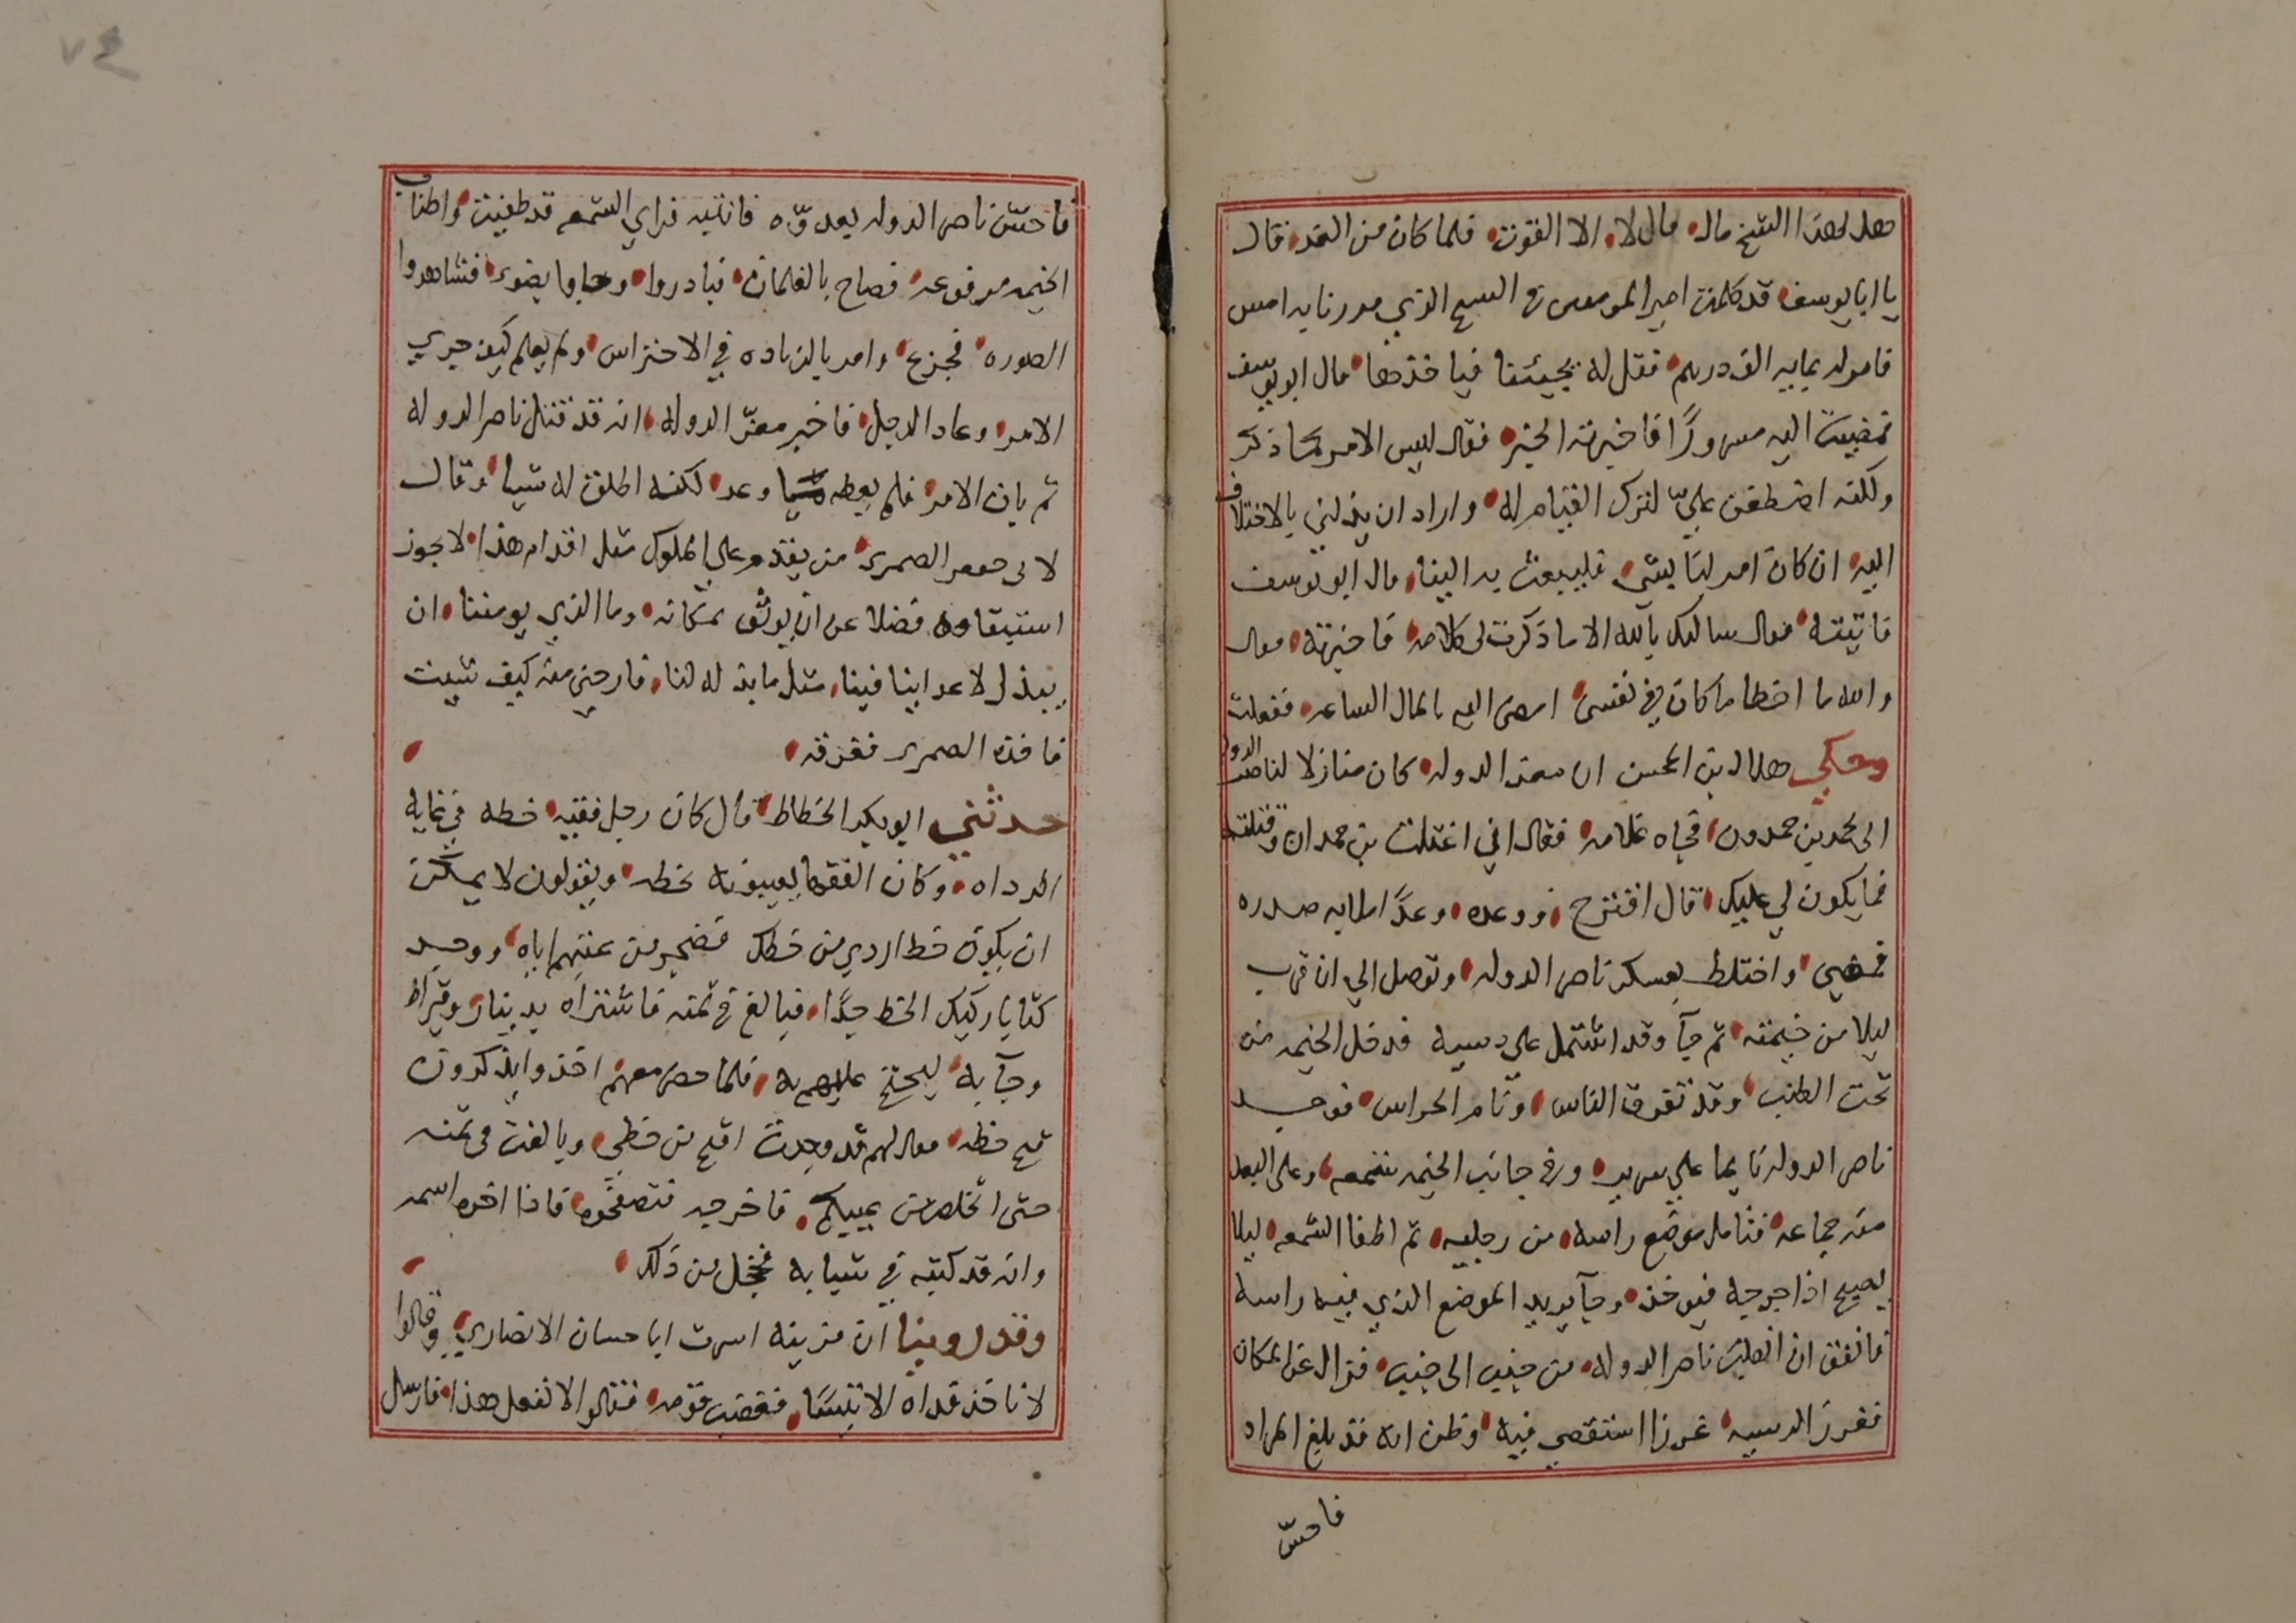 هل لهذا الشيخ مال قال لا الا القوت فلما كان من الغد قال
يا ابا يوسف قد كلمت امير المومنين في الشيخ الذي مررنا به امس
فامر له بمايه الف درهم فقل له يجيئنا فياخذها قال ابو يوسف
فمضيت اليه مسرورًا فاخبرته الخبر فقال ليس الامر كما ذكر
ولكنه اضطغن عليّ لترك القيام له واراد ان يذلني بالاختلاف
اليه ان كان امر لنا بشي فليبعث به الينا قال ابو يوسف
فاتيته فقال سالتك بالله الا ما ذكرت لي كلامه فاخبرته فقال
والله ما اخطا ما كان في نفسي امض اليه بالمال الساعه ففعلت
وحكي هلال بن المحسن ان معز الدوله كان منازلا لناصر الدوله
الى محمد بن حمدون فجاه غلامه فقال اني اغتلت بن حمدان وقتلته
فما يكون لي عليك قال اقترح ووعده وعدًا املا به صدره
فمضي واختلط بعسكر ناصر الدوله وتوصل الي ان قرب
ليلا من خيمته ثم جآ وقد اشتمل علي دسيه فدخل الخيمه من
تحت الطنب وقد تفرق الناس ونام الحراس فوجد
ناصر الدوله نايما علي سرير وفي جانب الخيمه شمعه وعلى البعد
منه جماعه فتامل موضع راسه من رجليه ثم اطفا الشمعه ليلا
يصيح اذا جرحه فيوخذ وجآ يريد الموضع الذي فيه راسه
فاتفق ان انقلب ناصر الدوله من جنب الى جنب فزال عن المكان
فغرز الدسيه غرزا استقصي فيه وظن انه قد بلغ المراد
فاحسّ
٧٤
فاحسّ ناصر الدوله بعدوّه فانتبه فراي الشمعه قد طفيت واطناب
الخيمه مرفوعه فصاح بالغلمان فبادروا وجاوا بضوء فشاهدوا
الصوره فجزع وامر بالزياده في الاحتراس ولم يعلم كيف جري
الامر وعاد الرجل فاخبر معزّ الدوله انه قد قتل ناصر الدوله
ثم بان الامر فلم يعطه ما وعد لكنه اطلق له شيا وقال
لابي جعفر الصمري من يقدم علي الملوك مثل اقدام هذا لا يجوز
استبقاوه فضلا عن ان يوثق بمكانه وما الذي يومننا ان
يبذل لاعداينا فينا مثل ما بذله لنا فارحني منه كيف شيت
فاخذه الصمري فغرقه
حدثني ابو بكر الخطاط قال كان رجل فقيه خطه في غايه
الرداه وكان الفقها يعيبونه بخطه ويقولون لا يمكن
ان يكون خط اردي من خطك فضجر من عيبهم اياه ووجد
كتابا ركيك الخط جدًا فبالغ في ثمنه فاشتراه بدينار وقيراط
وجآ به ليحتج عليهم به فلما حضر معهم اخذوا يذكرون
قبح خطه فقال لهم قد وجدت اقبح من خطي وبالغت في ثمنه
حتى اتخلص من عيبكم فاخرجه فتصفحوه فاذا اخره اسمه
وانه قد كتبه في شبابه فخجل من ذلك
وقد روينا ان مزينه اسرت ابا حسان الانصاري وقالوا
لا ناخذ فداه الا تيسًا فغضب قومه فقالوا لا نفعل هذا فارسل